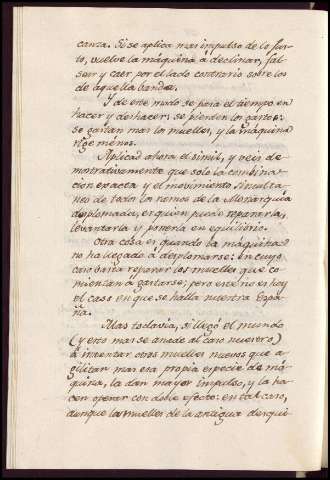 canza. Si se aplica mas impulso de lo jus-
to, vuelve la máquina á declinar, fal-
sear y caer por el lado contrario sobre los
de aquella banda.
Y de este modo se pasa el tiempo en
hacer y deshacer: se pierden los gastos:
se gastan mas los muelles, y la máquina
rige ménos.
Aplicad ahora el simil, y veis de-
mostrativamente que solo la combina-
cion exacta y el movimiento simulta-
neo de todos los ramos de la Monarquía
desplomada, es quien puede repararla,
levantarla y ponerla en equilibrio.
Otra cosa es quando la máquina
no ha llegado á desplomarse: En cuyo
caso basta reparar los muelles que co-
mienzan á gastarse; pero ese no es hoy
el caso en que se halla nuestra Espa-
ña.
Mas todavia, si llegó el mundo
(y esto mas se añade al caso nuestro)
á inventar otros muelles nuevos que a-
gilitan mas esa propia especie de má-
quina, la dan mayor impulso, y la ha-
cen operar con doble efecto: en tal caso,
aunque los muelles de la antigua desqui-